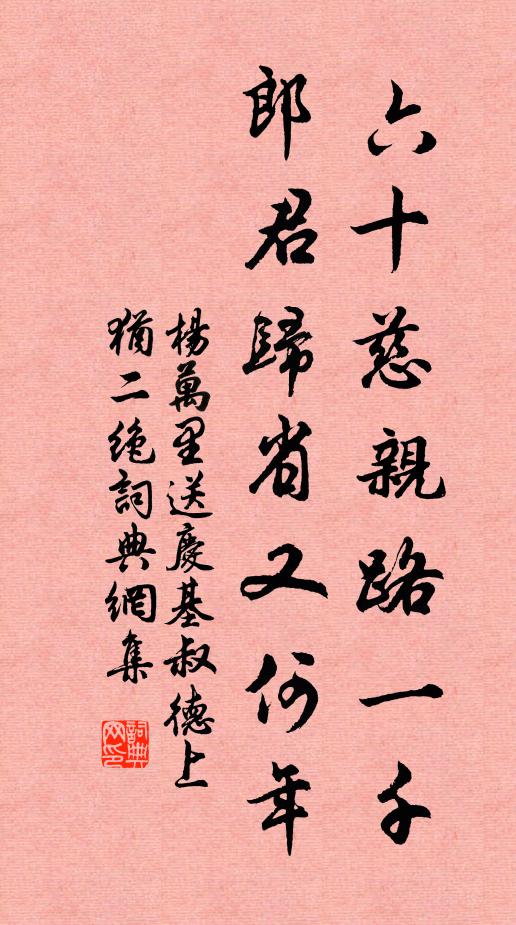 六十慈親路一千
郎君歸省又何年
楊萬里送慶基叔德上
猶二絶詞典網集
詞典網印